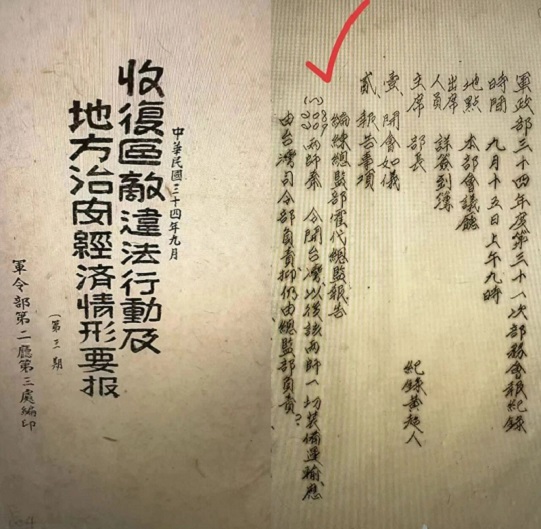 收復區敵違法行動及
地方治安經済情形要报
中華民國三十四年九月
(第三期)
軍令部第二廳第三處編印
軍政部三十四年度第三十一次部務會報紀錄
時間 九月十五日上午九時
地點 本部會議廳
出席人員 詳簽到簿
主席 部長
紀錄 黃超人
壹、開會如儀
貳、報告事項
編練總監部霍代總監報告
兩師奉 令開台灣以後該兩師一切裝備運輸應
由台灣司令部負責抑仍由總監部負責?